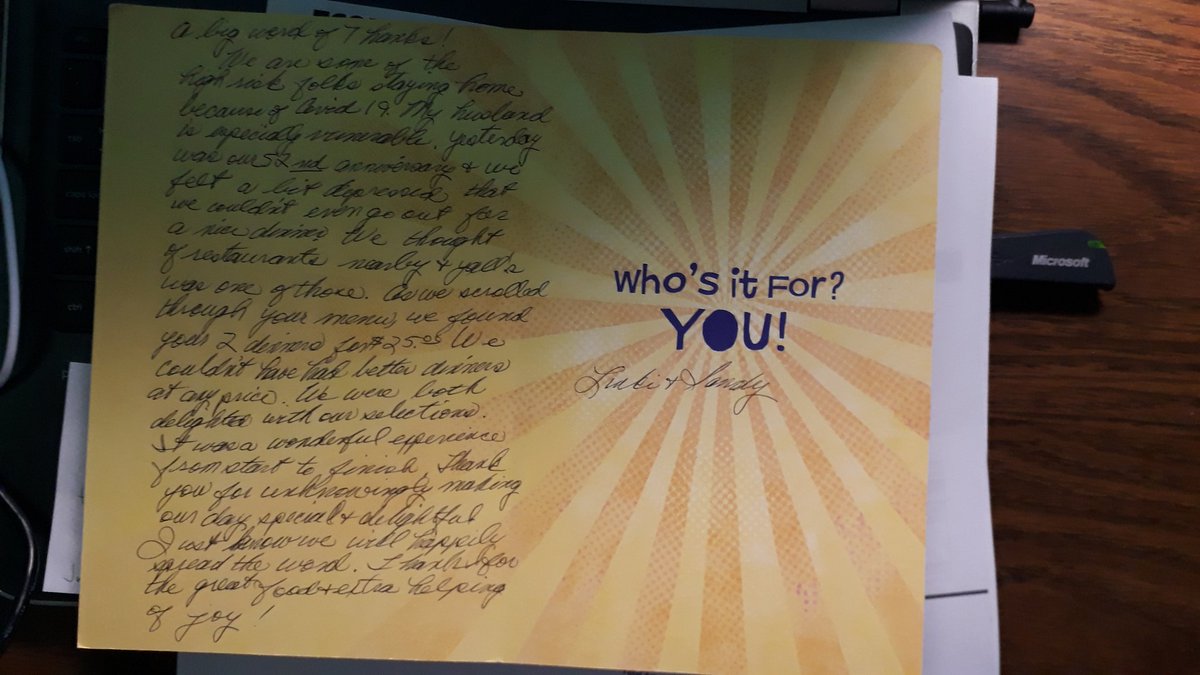 A big word of Thanks!
We are some of the
high risk folks staying home
because of Covid 19. My husband
is especially vunerable. Yesterday
was our 52nd anniversary & we
felt a bit depressed that
we couldn't even go out for
a nice dinner. We thought
of restaurants nearby & yall's
was one of those. As we scrolled
through your menu, we found
your 2 dinners for $25.00 We
couldn't have had better dinners
at any price. We were both
delighted with our selections.
It was a wonderful experience
from start to finish. Thank
you for unknowingly making
our day special & delightful
Just know we will happily
spread the word. Thanks for
the great food & extra helping
of joy!
Who's it For?
YOU!
& Sandy
Microsoft